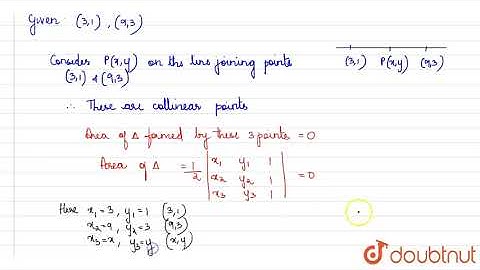 Given (3,1), (9,3)
Consider P(x,y) on the line joining points
(3,1) & (9,3)
(3,1) P(x,y) (9,3)
∴ These are collinear points
Area of Δ formed by these 3 points = 0
Area of Δ = 1/2 | x₁ y₁ 1 | = 0
| x₂ y₂ 1 |
| x₃ y₃ 1 |
Here x₁=3, y₁=1 (3,1)
x₂=9, y₂=3 (9,3)
x₃=x, y₃=y (x,y)
doubtnut